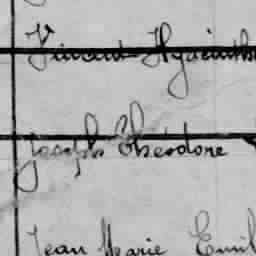 Vincent Hyacinth
Joseph Théodore
Jean Marie Emil